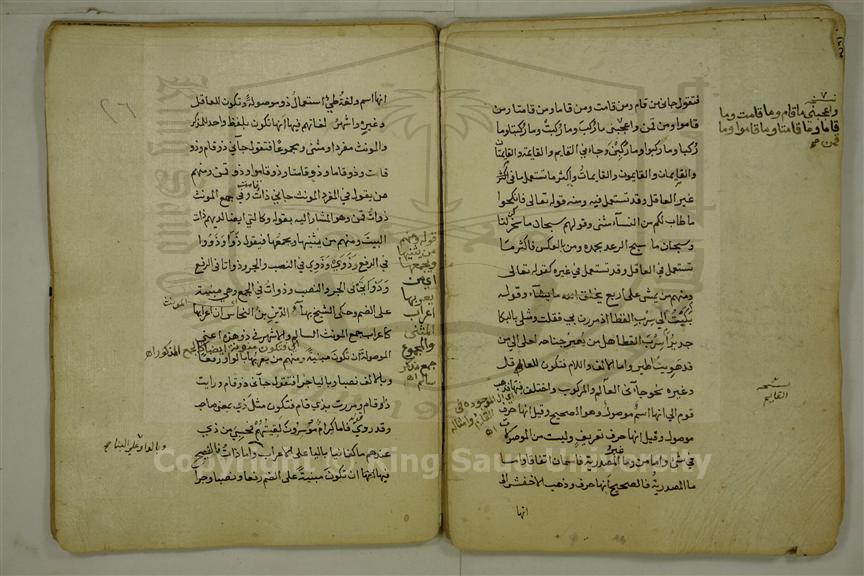 فتقول جاني من قام ومن قامت ومن قاما ومن قامتا ومن
قاموا ومن قمن واعجبني ما ركب وما ركبت وما ركبا وما
ركبتا وما ركبوا وما ركبن وجاءني القايم والقايمة والقايمان
والقايمتان والقايمون والقايمات واكثر ما تستعمل ما في
غير العاقل وقد تستعمل فيه ومنه قوله تعالى فانكحوا
ما طاب لكم من النسآء مثنى وقولهم سبحان ما سخركن لنا
وسبحان ما سبح الرعد بحمده ومن بالعكس فاكثر ما
تستعمل في العاقل وقد تستعمل في غيره كقوله تعالى
ومنهم من يمشي على اربع يخلق الله ما يشاء وقوله
بكيت الى سرب القطا اذ مررن بي فقلت ومثلي بالبكا
جدير أسرب القطا هل من يعير جناحه لعلي الى من
قد هويت اطير واما الالف واللام فتكون للعاقل
وغيره نحو جاءني العالم والمركوب واختلف فيها فذهب
قوم الى انها اسم موصول وهو الصحيح وقيل انها حرف
موصول وقيل انها حرف تعريف وليست من الموصولة
في شي واما من وما غير المصدرية فاسمان اتفاقا واما
ما المصدرية فالصحيح أنها حرف وذهب الاخفش الى
انها
واعجبني ما قام وما قامت وما
قاما وما قامتا وما قاموا وما
قمن
القايم
انها اسم ولغة طي استعمال ذو موصولة وتكون للعاقل
وغيره واشهر لغاتهم فيها أنها تكون بلفظ واحد للمذكر
والمونث مفردا ومثنى ومجموعا فتقول جآني ذو قام وذو
قامت وذو قاما وذو قامتا وذو قاموا وذو قمن ومنهم
من يقول في المفرد المونث جاني ذات قامت وفي جمع المونث
ذوات قمن وهو المشار اليه بقوله وكالتي ايضا لديهم ذات
البيت ومنهم من يثنيها ويجمعها فيقول ذوا وذووا
في الرفع وذوي وذوي في النصب والجر وذواتا في الرفع
وذواتي في الجر والنصب وذوات في الجمع وهي مبنية
على الضم وحكى الشيخ بهآ الدين بن النحاس ان اعرابها
كاعراب جمع المونث السالم والاشهر في ذو هذه اعني
الموصولة ان تكون مبنية ومنهم من يعربها بالواو رفعا
وبالالف نصبا وبالياء جرا فتقول جآني ذو قام ورايت
ذا قام ومررت بذي قام فتكون مثل ذي بمعنى صاحب
وقد روي قوله فاما كرام موسرون لقيتهم فحسبي من ذي
عندهم ما كفانيا بالياء على الاعراب واما ذات فالفصيح
فيها ان تكون مبنية على الضم رفعا ونصبا وجرا
قوله ومنهم
من يثنيها
ويجمعها
اي من
يعربها
اعراب
المثنى
والمجموع
جمع مذكر
سالم
وبالواو على البنا
Copyright © King Saud University